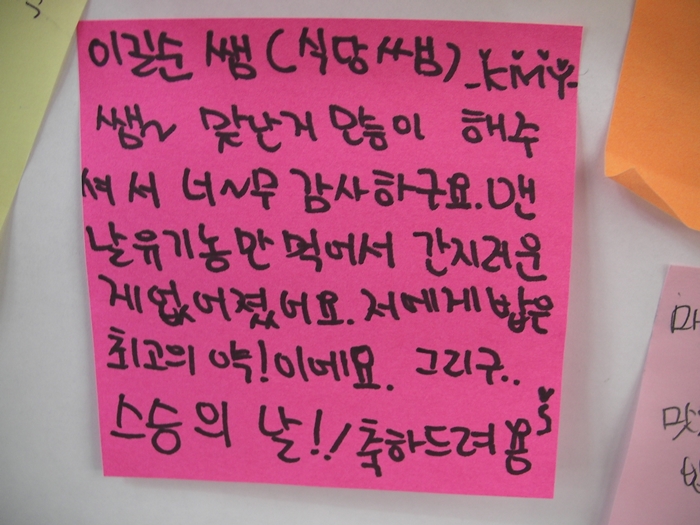 이길순 쌤 (식당쌤) -KMY-
쌤~ 맞난거 만능이 해주
셔서 너~무 감사하구요. 맨
날 유기농만 먹어서 간지러운
게 없어졌어요. 저에게 밥은
최고의 약! 이에요. 그리구..
스승의 날!! 축하드려용S